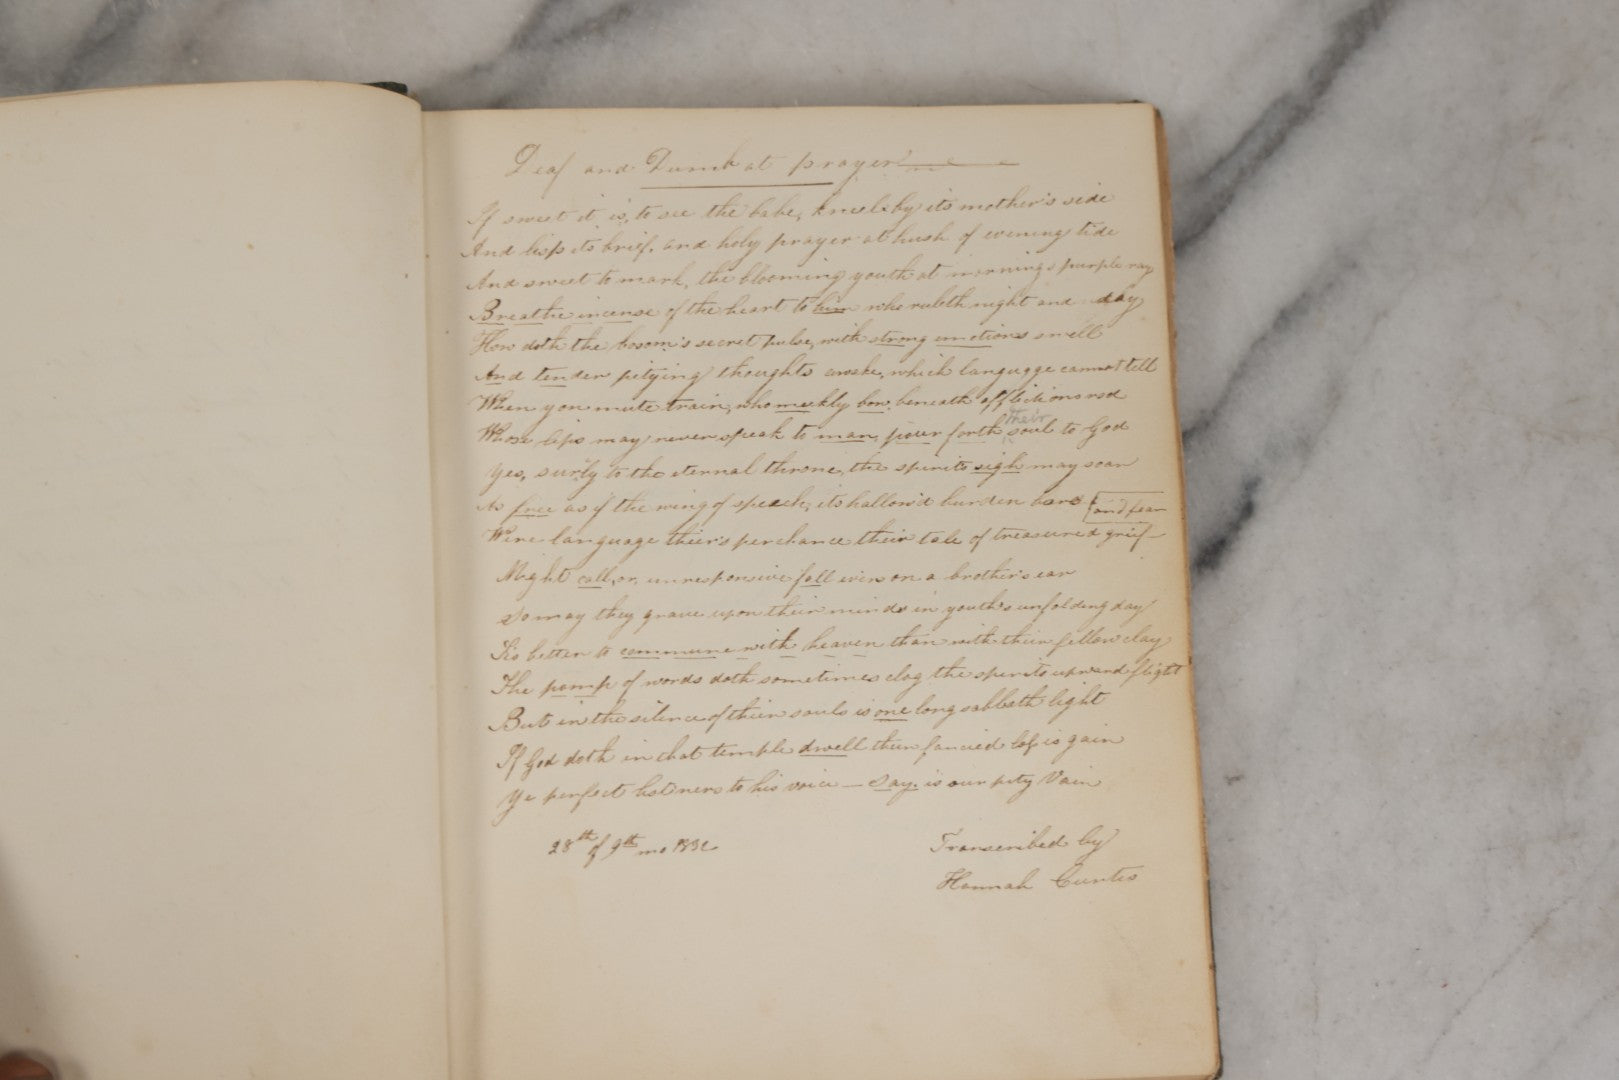 Deaf and Dumb at prayer
If sweet it is, to see the babe, kneel by its mother's side
And lisp its brief, and holy prayer at hush of evening tide
And sweet to mark, the blooming youth at mornings purple ray
Breathe incense of the heart to him who ruleth night and day
How doth the bosom's secret pulse, with strong emotions swell
And tender pitying thoughts awake, which langugge cannot tell
When yon mute train, who meekly bow beneath afflictions rod
Whose lips may never speak to man, pour forth their soul to God
Yes, surly to the eternal throne, the spirits sigh may soar
As free as if the wing of speech, its hallow'd burden bore
and fear
Were language their's perchance their tale of treasured grief
Might call, or, unresponsive fall even on a brother's ear
So may they grave upon their minds in youth's unfolding day
Tis better to commune with heaven than with their fellow clay
The pomp of words doth sometimes clog the spirits upward flight
But in the silence of their souls is one long sabbath light
If God doth in that temple dwell their fancied loss is gain
Ye perfect listners to his voice — Say, is our pity Vain
28th of 9th mo
Transcribed by
Hannah Curtis